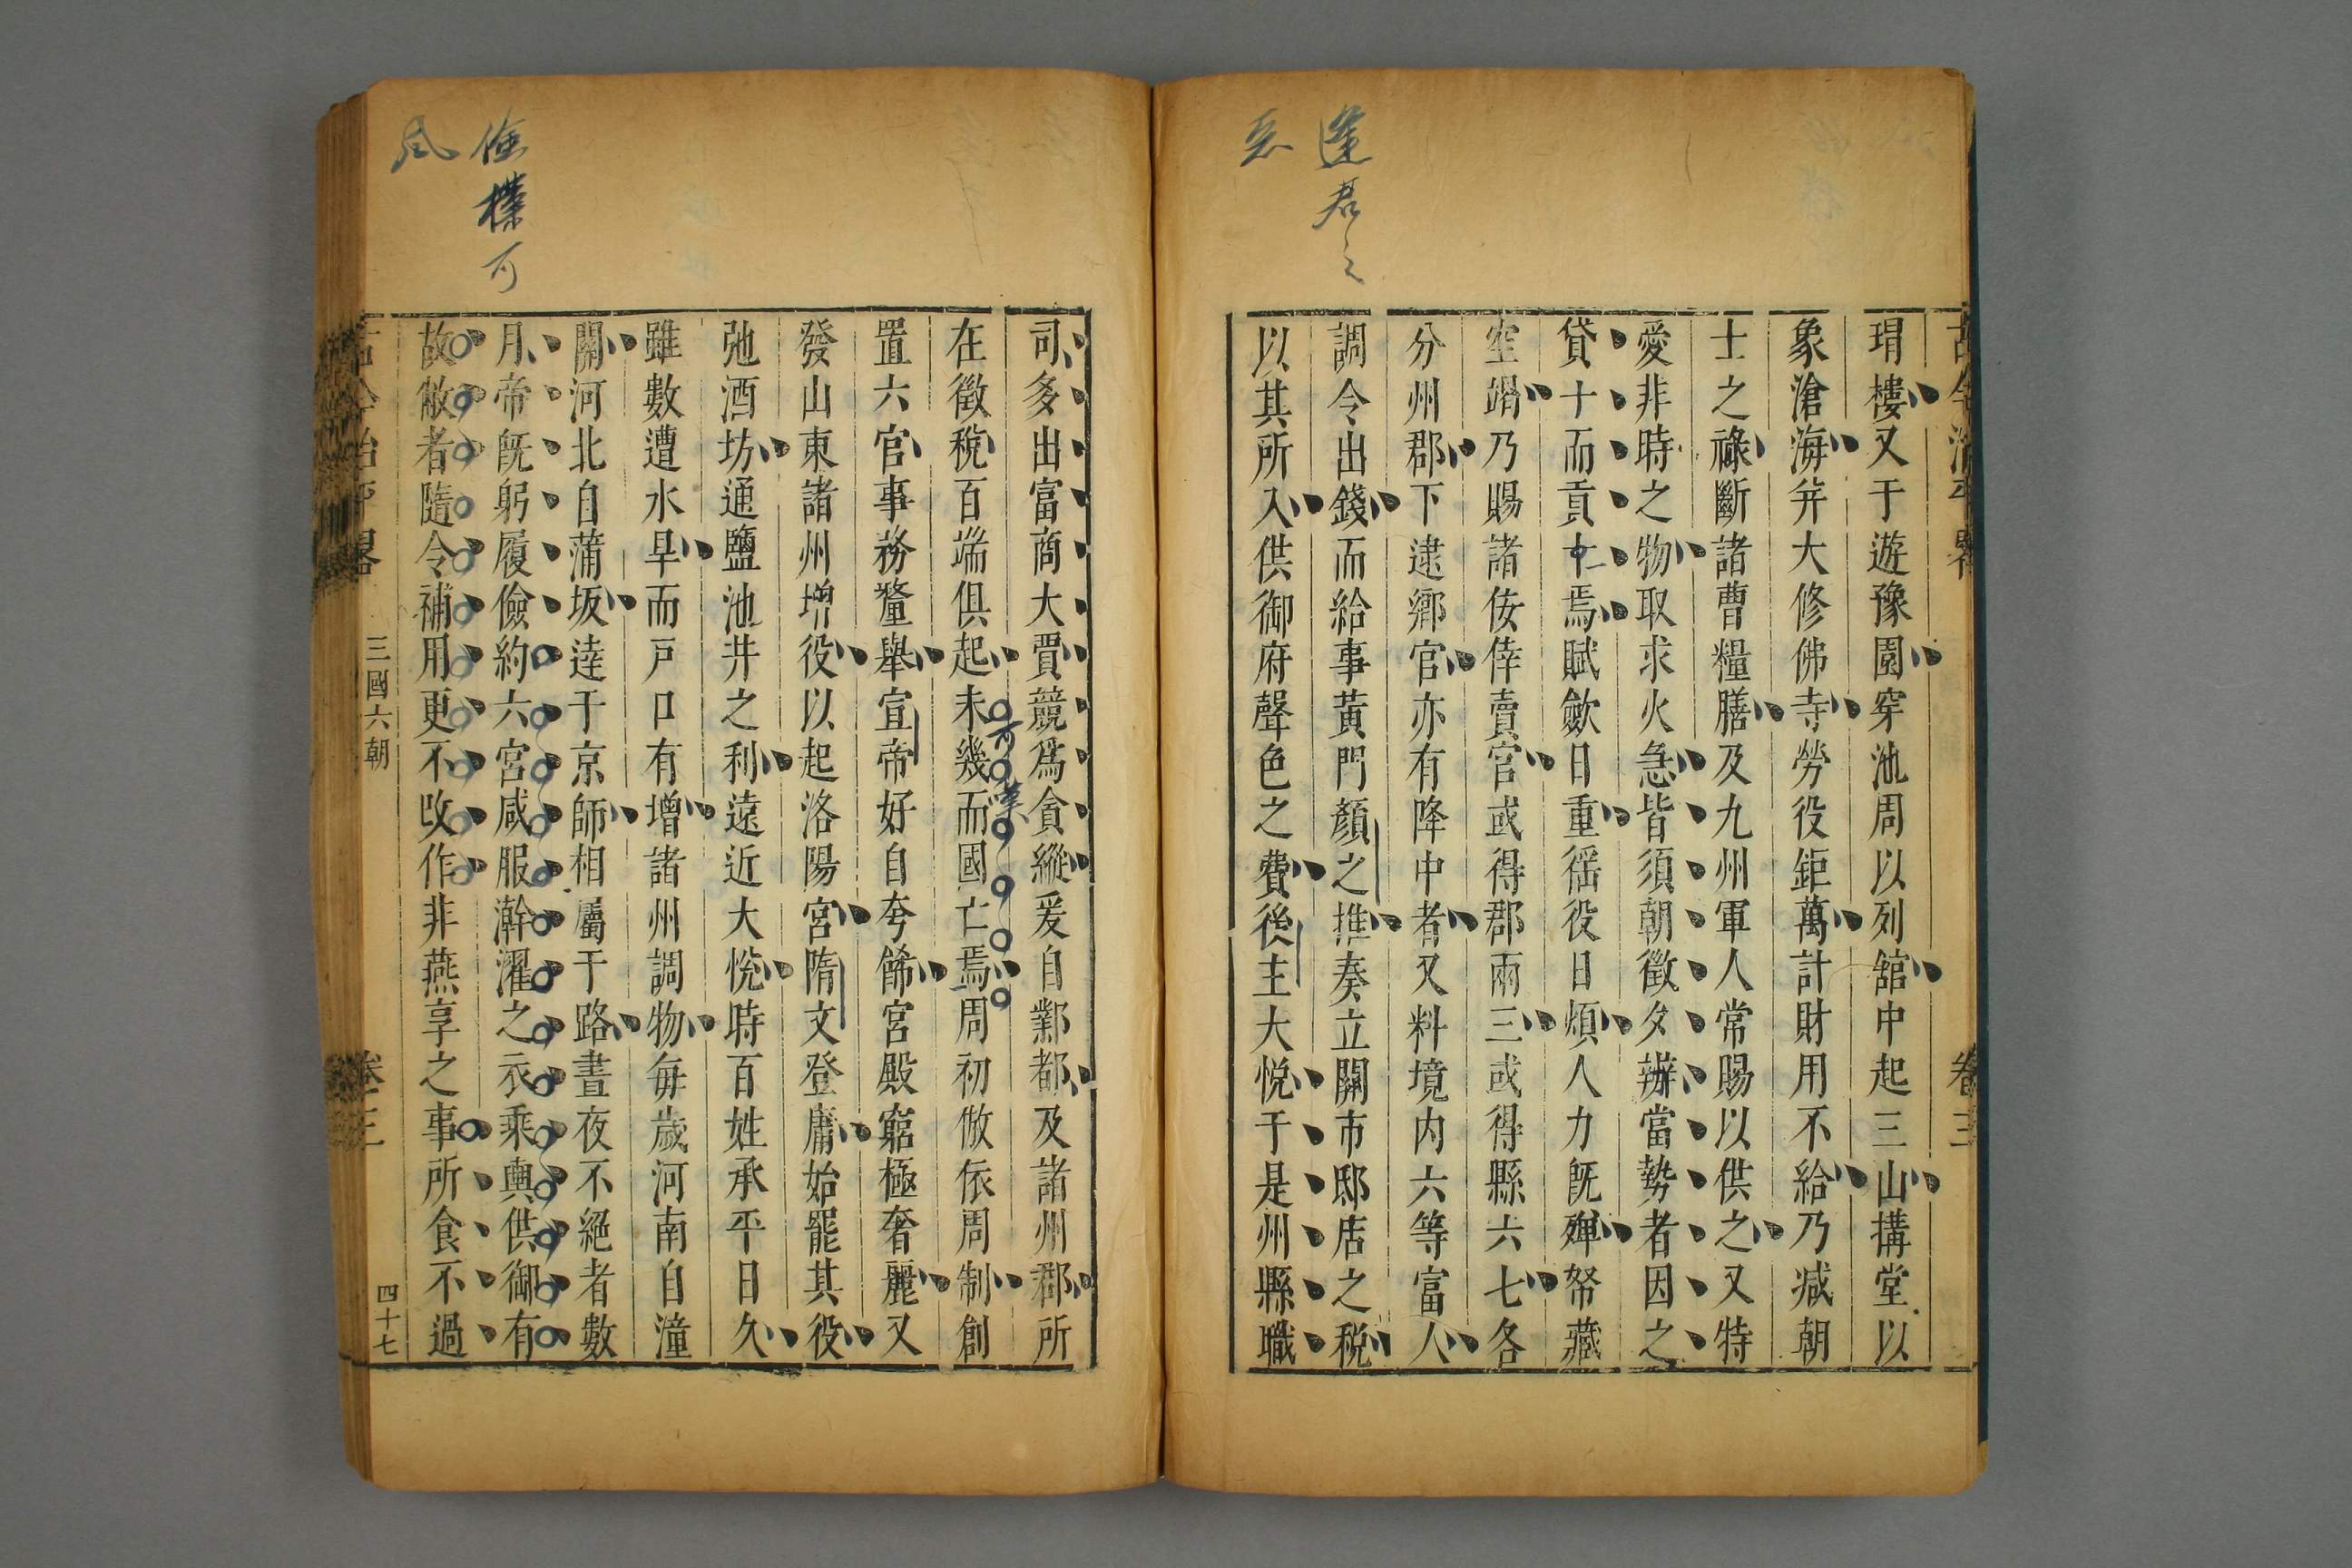 逢君之
惡
瑁樓又于遊豫園穿池周以列舘中起三山搆堂以
象滄海并大修佛寺勞役鉅萬計財用不給乃减朝
士之祿斷諸曹糧膳及九州軍人常賜以供之又特
愛非時之物取求火急皆須朝徵夕辦當勢者因之
貸十而貢十焉賦歛日重徭役日煩人力旣殫帑藏
空竭乃賜諸佞倖賣官或得郡兩三或得縣六七各
分州郡下逮鄉官亦有降中者又料境內六等富人
調令出錢而給事黃門顏之推奏立關市邸店之稅
以其所入供御府聲色之費後主大悅于是州縣職
儉樸可
風
司多出富商大賈競爲貪縱爰自鄴都及諸州郡所
在徵稅百端俱起未幾而國亡焉周初倣依周制創
置六官事務釐舉宣帝好自夸餙宮殿窮極奢麗又
發山東諸州增役以起洛陽宮隋文登庸始罷其役
弛酒坊通鹽池井之利遠近大悅時百姓承平日久
雖數遭水旱而戸口有增諸州調物每歲河南自潼
關河北自蒲坂逹于京師相屬于路晝夜不絕者數
月帝旣躬履儉約六宮咸服澣濯之衣乘輿供御有
故敝者隨令補用更不改作非燕享之事所食不過
三國六朝
卷三
四十七